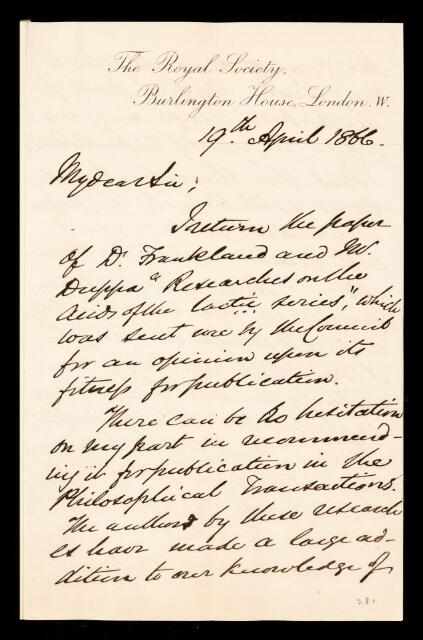 The Royal Society,
Burlington House, London. W.
19th April 1866.
My dear Sir,
I return the paper
of Dr. Frankland and Mr.
Duppa "Researches on the
Acids of the lactic series", which
was sent me by the Council
for an opinion upon its
fitness for publication.
There can be no hesitation
on my part in recommend-
ing it for publication in the
Philosophical Transactions.
The authors by these research
es have made a large ad-
dition to our knowledge of
281